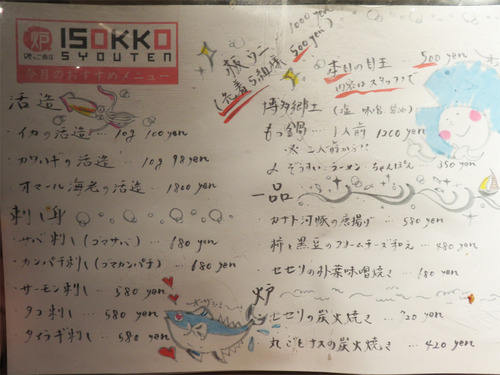 炉
ISOKKO
SYOUTEN
今月のおすすめメニュー
活造
・イカの活造 … 10g 100yen
・カワハギの活造 10g 98yen
・オマール海老の活造 … 1800 yen
刺し身
・サバ刺し (ゴマサバ) … 680 yen
・カンパチ刺し (ゴマカンパチ) … 680 yen
・サーモン刺し … 580 yen
・タコ刺し … 580 yen
・タイラギ刺し … 580 yen
1000yen
板ウニ 500yen
(先着5組様)
本日の目玉 500yen
内容はスタッフまで
博多郷土 (塩 味噌 醤油)
もつ鍋 … 1人前 1200 yen
※ 二人前から!!
〆 ぞうすい・ラーメン・ちゃんぽん 350 yen
一品
・カナト河豚の唐揚げ … 580 yen
・柿と黒豆のクリームチーズ和え … 480 yen
・セセリの朴葉味噌焼き … 680 yen
炉
・セセリの炭火焼き … 720 yen
・丸ごとナスの炭火焼き … 420 yen